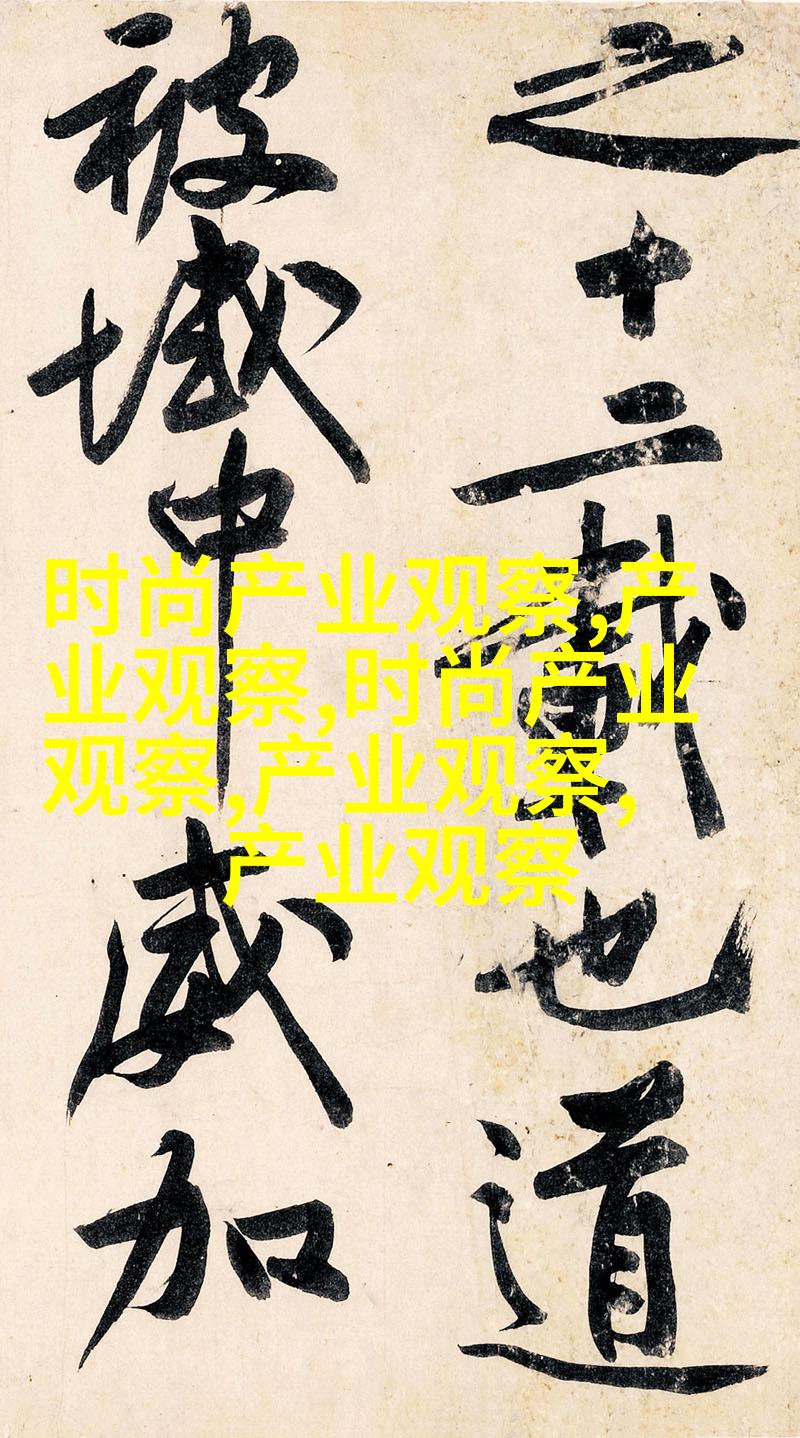 之十二載也道
被域中威加
时尚产业观察,产
业观察,时尚产业
观察,产业观察,
产业观察